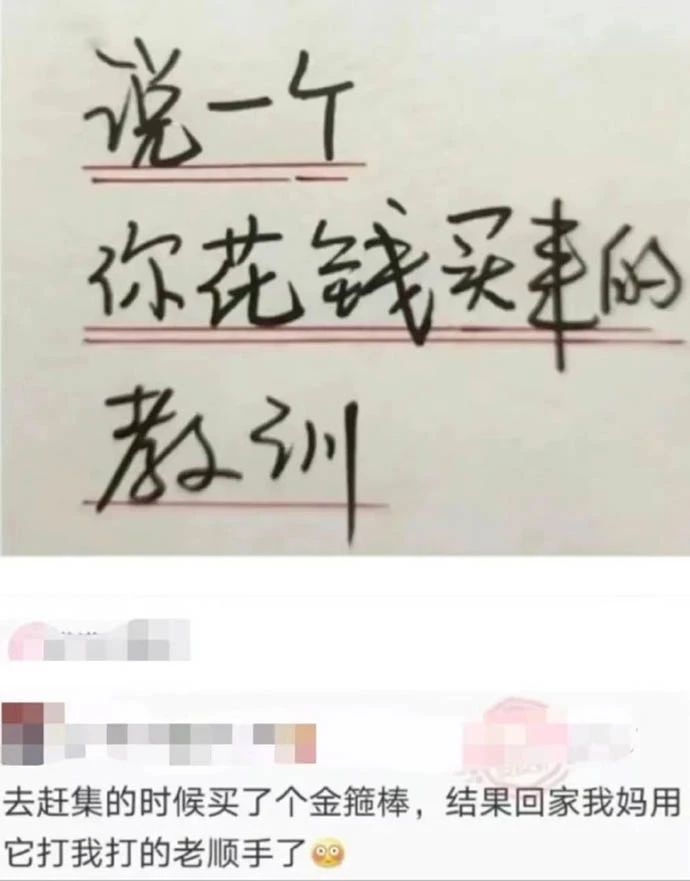 说一个
你花钱买来的
教训
去赶集的时候买了个金箍棒，结果回家我妈用
它打我打的老顺手了